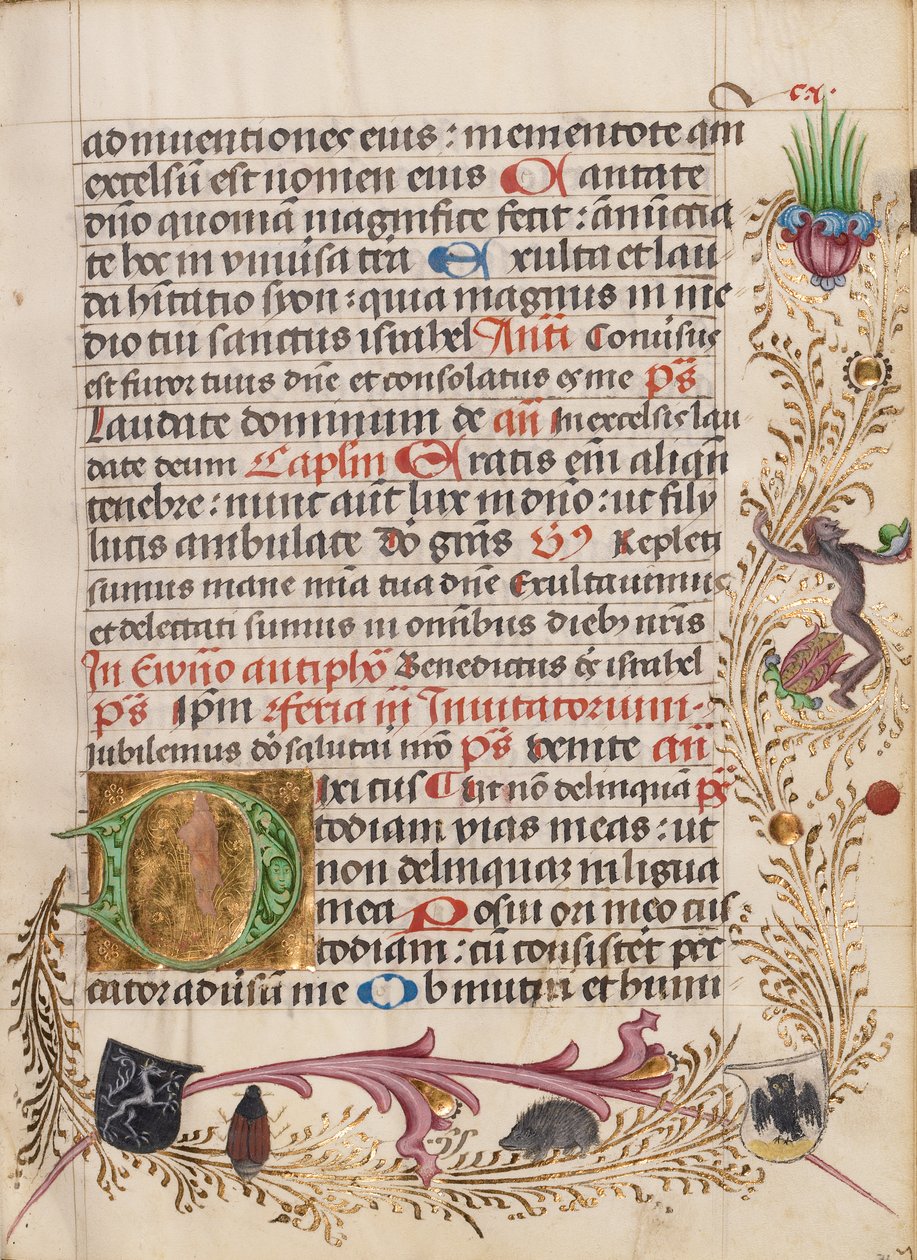 cx.
adinuentiones eius : mementote qm̄
excelsū est nomen eius Cantate
dn̄o quoniā magnifice fecit : ānūctia
te hoc in vniuisa tr̄a Exulta et lau
da hītatio syon : quia magnus in me
dio tui sanctus israhel Anti Conuisus
est furor tuus dn̄e et consolatus es me ps̄
Laudate dominum de añ In excelsis lau
date deum Caplm Eratis em̄ aliqn̄
tenebre : nunc aūt lux in dn̄o : ut filij
lucis ambulate Dō grās Vs Repleti
sumus mane mīa tua dn̄e Exultauimus
et delectati sumus in omībus diebꝫ nr̄is
In Ewn̄o antiphō Benedictus ds̄ israhel
ps̄ Ipm feria iij Inuitatorium
Iubilemus dō salutari nr̄o ps̄ venite añ
Dixi cus Ut nō delinquā ps̄
todiam vias meas : ut
non delinquaꝫ in ligua
mea Posui ori meo cus
todiam : cū consistēt pec
cator aduisū me Obmutui et humi